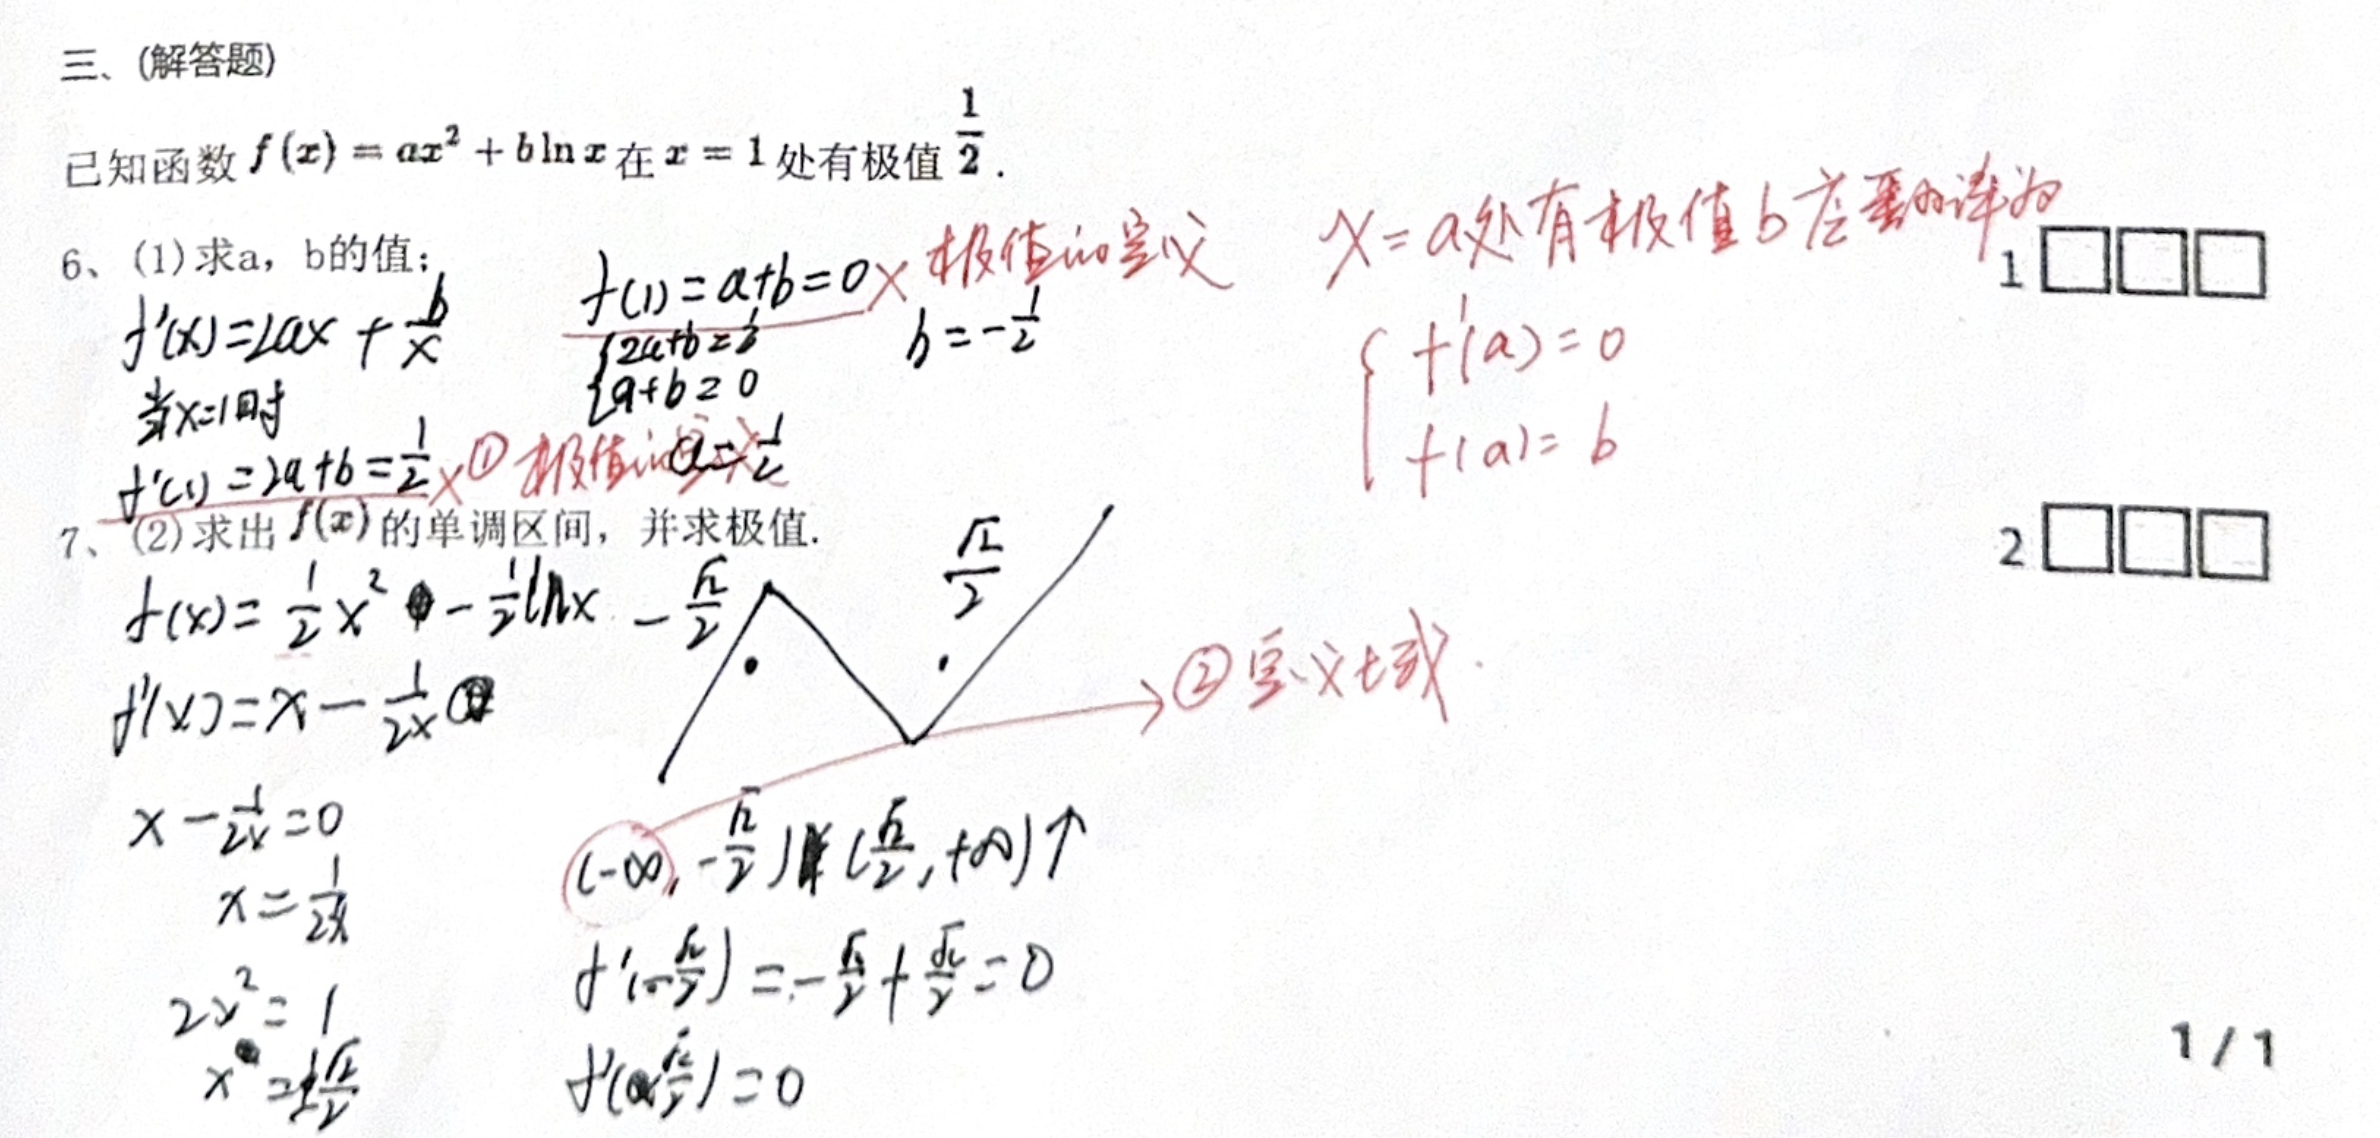 三、(解答题)
已知函数 f(x) = ax² + b ln x 在 x = 1 处有极值 1/2 .
6、(1)求a，b的值；
f'(x)=2ax + b/x
当x=1时
f'(1)=2a+b=1/2 × ① 极值的定义
f(1)=a+b=0 × 极值的定义
{2a+b=1/2
{a+b=0
a=1/2
b=-1/2
x=a处有极值b 应翻译为
{ f'(a)=0
f(a)=b
1
7、(2)求出 f(x) 的单调区间，并求极值.
f(x)= 1/2 x² - 1/2 lnx
f'(x)=x - 1/2x
x - 1/2x =0
x = 1/2x
2x²=1
x =±√2/2
-√2/2
√2/2
② 定义域.
(-∞, -√2/2) (√2/2, +∞)↑
f'(-√2/2) = -√2/2 + √2/2 = 0
f'(√2/2)=0
2
1 / 1